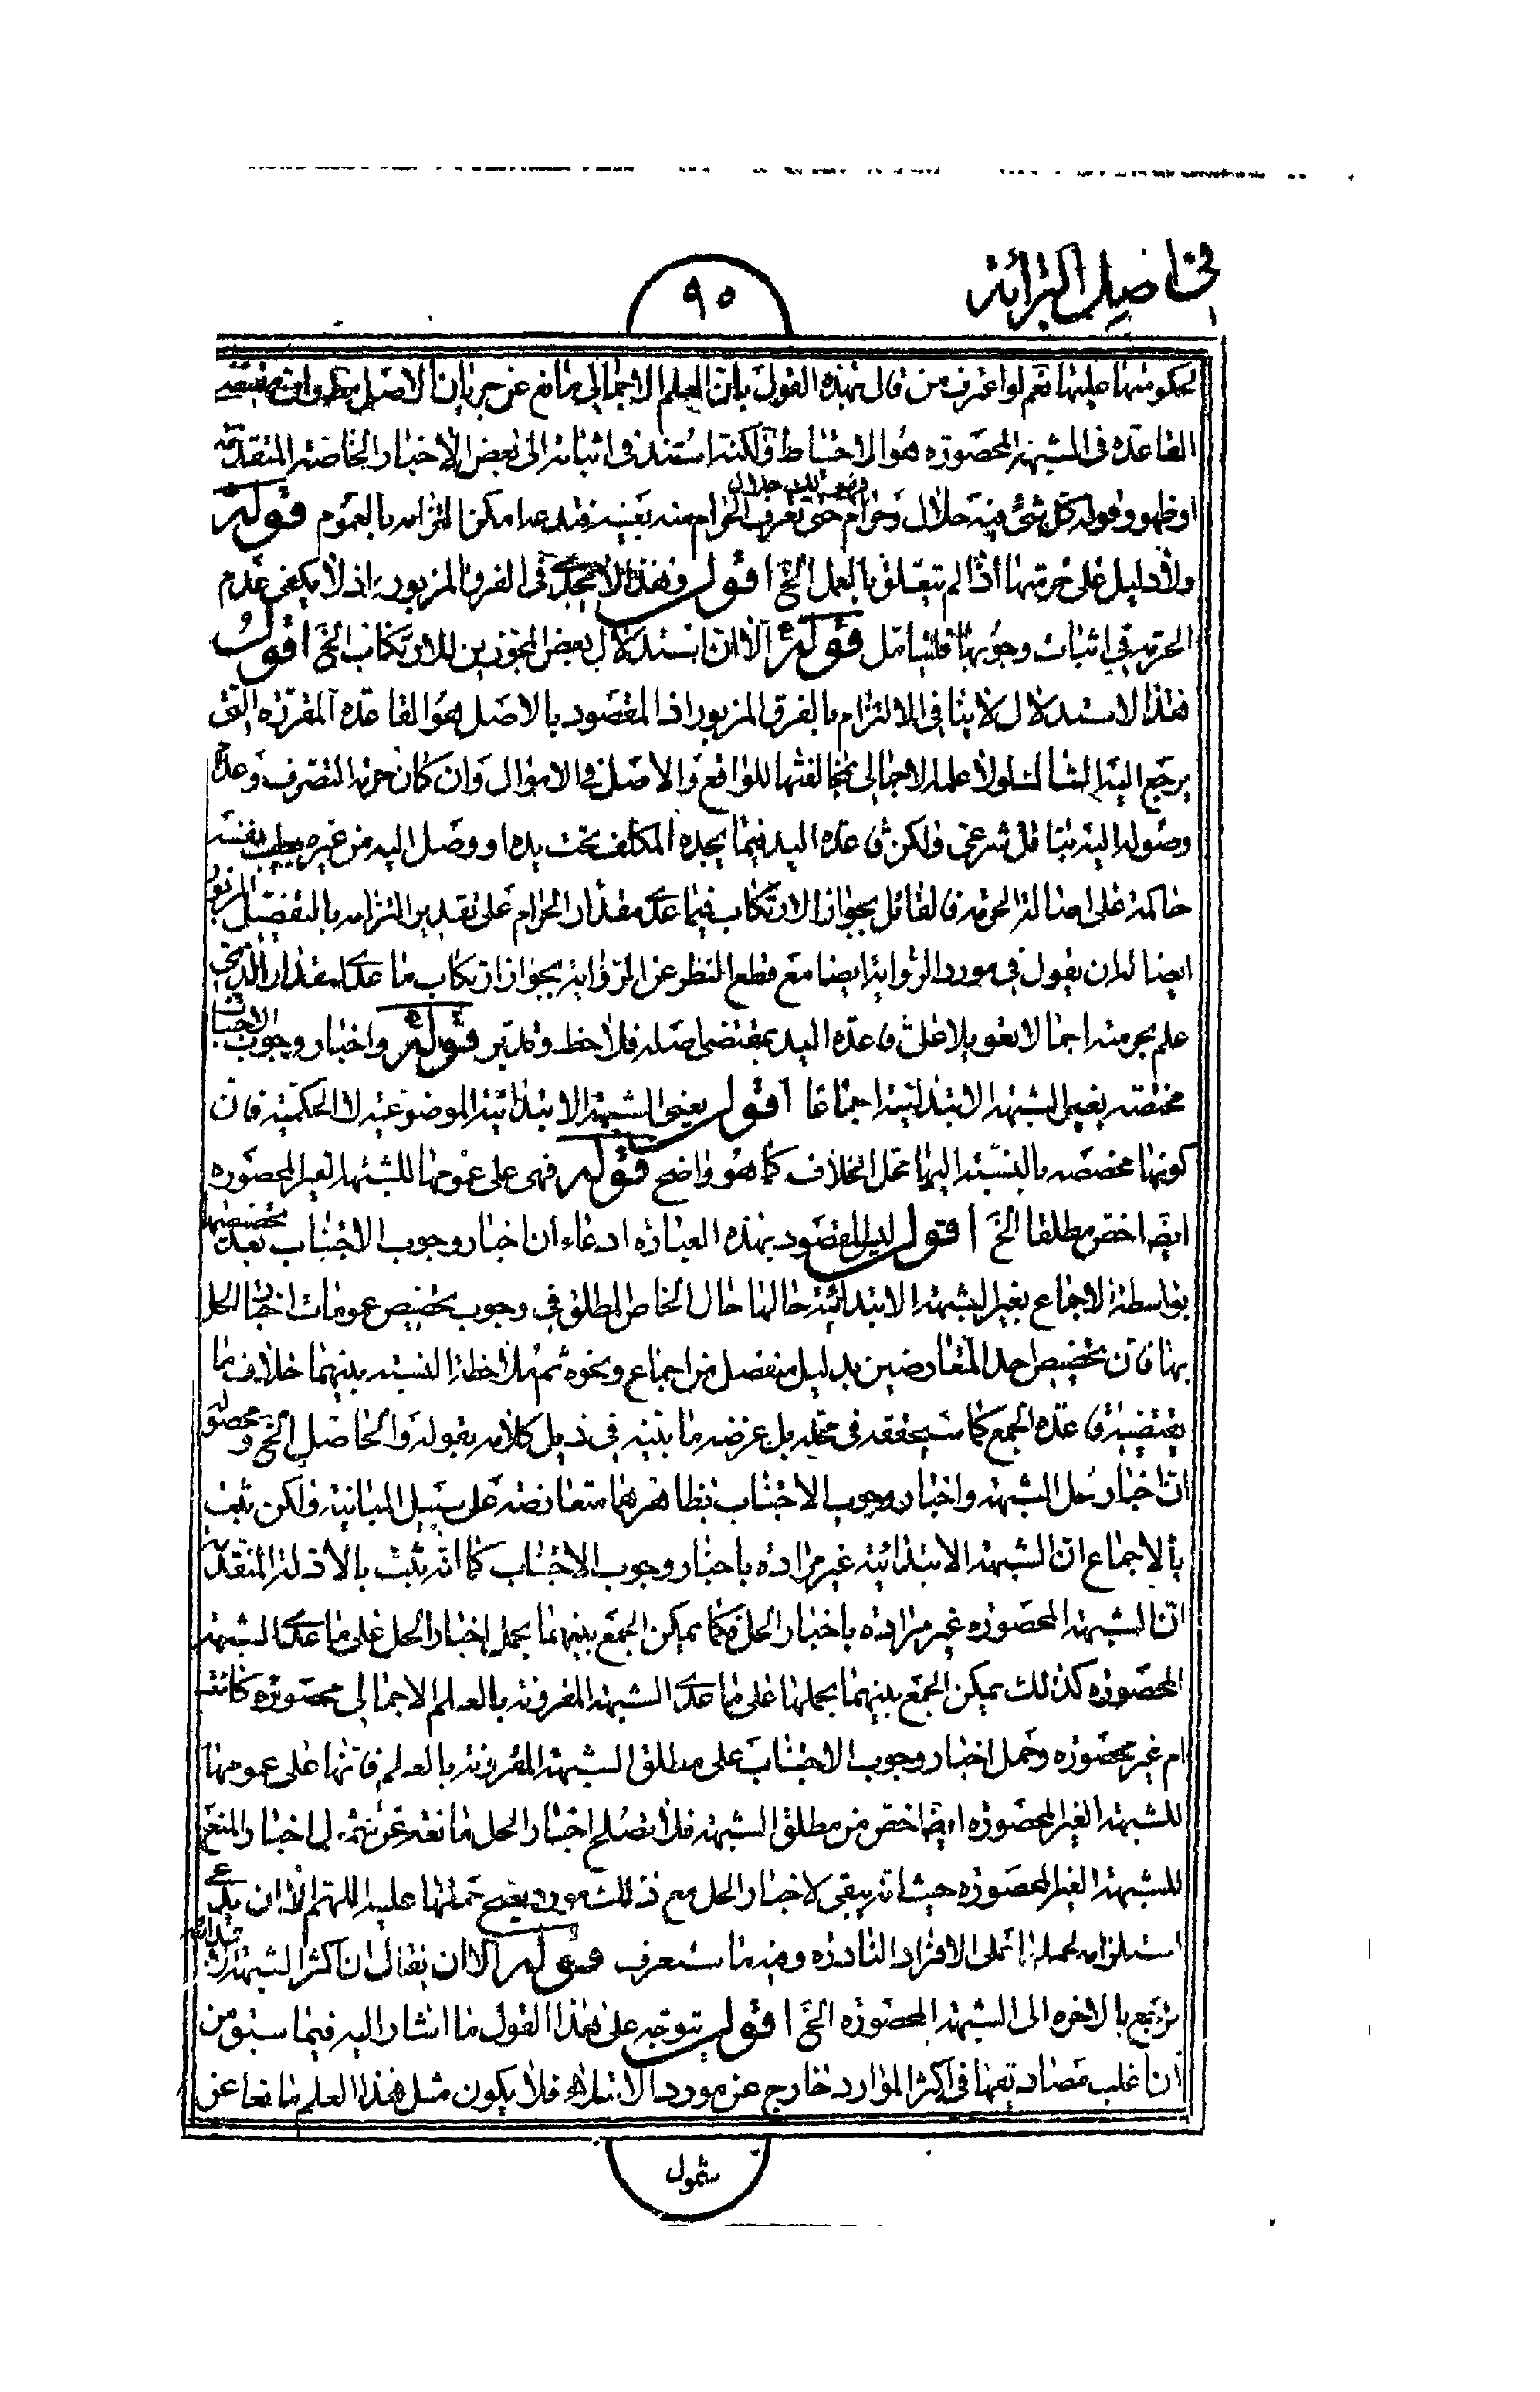 في اصل البرائة
٩٥
لحكومتها عليها نعم لو اعترف من قال بهذه القول بان العلم الاجمالي مانع عن جريان الاصل مطلقا وان مقتضى
القاعدة في الشبهة المحصورة هو الاحتياط ولكنه استند في اثباته الى بعض الاخبار الخاصة المتقدمة
او ظهور قوله كل شئ فيه حلال وحرام فهو لك حلال حتى تعرف الحرام منه بعينه فيه امكن التزامه بالعموم قوله
ولا دليل على حرمتها اذا لم يتعلق بالعمل الخ اقول وهذا لا يجدى في الفرق المزبور اذ لا يكفى عدم
الحرمة في اثبات وجوبها فليتامل قوله الا ان استدلال بعض المجوزين للارتكاب الخ اقول
هذا الاستدلال لا ينافي الالتزام بالفرق المزبور اذ المقصود بالاصل هو القاعدة المقررة التى
يرجع اليه الشاك لولا علمه الاجمالى بمخالفتها للواقع والاصل في الاموال وان كان حرمة التصرف وعدم
وصوله اليه بناقل شرعى ولكن قاعدة اليد فيما يجده المكلف تحت يده او وصل اليه من غيره بنفسه
حاكمة على اصالة الحرمة فالقائل بجواز الارتكاب فيما عدى مقدار الحرام على تقدير التزامه بالتفصيل المزبور
ايضا له ان يقول في مورد الرواية ايضا مع قطع النظر عن الرواية بجواز ارتكاب ما عدى مقدار الذى
علم بحرمته اجمالا تعويلا على قاعدة اليد بمقتضى اصله فلاحظ وتدبر قوله واخبار وجوب الاجتناب
مختصة بغير الشبهة الابتدائية اجماعا اقول يعنى الشبهة الابتدائية الموضوعية لا الحكمية فان
كونها مخصصه بالنسبة اليها محل الخلاف كما هو واضح قوله فهى على عمومها للشبهة الغير المحصورة
ايضا اخص مطلقا الخ اقول ليس المقصود بهذه العبارة ادعاء ان اخبار وجوب الاجتناب بعد تخصيصها
بواسطة الاجماع بغير الشبهة الابتدائية حالها حال الخاص المطلق في وجوب تخصيص عمومات اخبار الحل
بها فان تخصيص احد المتعارضين بدليل منفصل من اجماع ونحوه ثم ملاحظة النسبة بينهما خلاف ما
يقتضيه قاعدة الجمع كما ستحققه في محله بل غرضه ما بينه في ذيل كلامه بقوله والحاصل الخ ومحصوله
ان اخبار حل الشبهة واخبار وجوب الاجتناب بظاهرهما متعارضة على سبيل المباينة ولكن ثبت
بالاجماع ان الشبهة الابتدائية غير مرادة باخبار وجوب الاجتناب كما انه ثبت بالادلة المتقدمة
ان الشبهة المحصورة غير مرادة باخبار الحل فكما يمكن الجمع بينهما بحمل اخبار الحل على ما عدى الشبهة
المحصورة كذلك يمكن الجمع بينهما بحملها على ما عدى الشبهة المقرونة بالعلم الاجمالى محصورة كانت
ام غير محصورة وحمل اخبار وجوب الاجتناب على مطلق الشبهة المقرونة بالعلم فانها على عمومها
للشبهة الغير المحصورة ايضا اخص من مطلق الشبهة فلا تصلح اخبار الحل مانعة عن شمول اخبار المنع
للشبهة الغير المحصورة حيث انه يبقى لاخبار الحل مع ذلك مورد يصح حملها عليه اللهم الا ان يدعى
استلزامه لحملها على الافراد النادرة وفيه ما ستعرف قوله الا ان يقال ان اكثر الشبهة الابتدائية
ترجع بالاخرة الى الشبهة المحصورة الخ اقول يتوجه على هذا القول ما اشار اليه فيما سبق من
ان اغلب مصاديقها في اكثر الموارد خارج عن مورد الابتلاء فلا يكون مثل هذا العلم مانعا عن
شمول